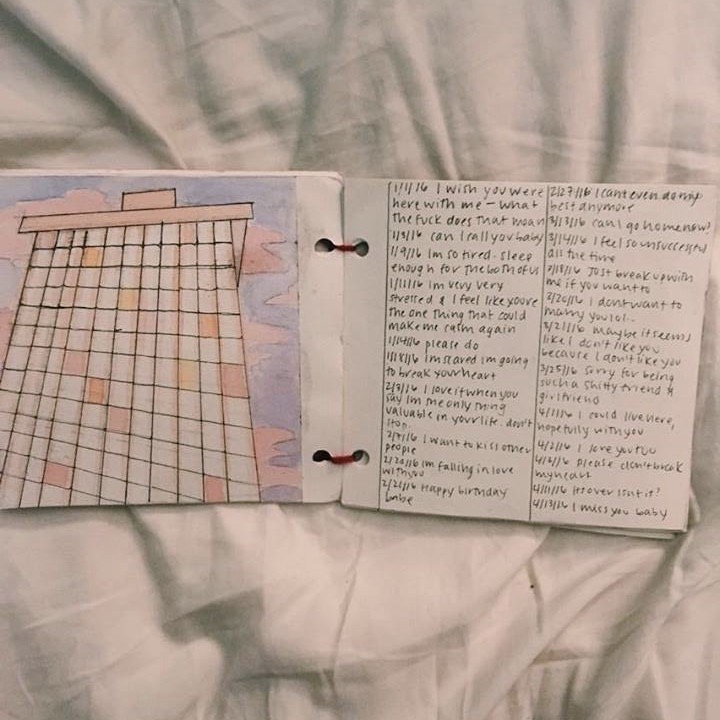 1/1/16 I wish you were
here with me - what
the fuck does that mean
1/3/16 can I call you baby
1/9/16 Im so tired - sleep
enough for the both of us
1/11/16 im very very
stressed & I feel like you're
the one thing that could
make me calm again
1/14/16 please do
1/18/16 im scared im going
to break your heart
2/3/16 I love it when you
say Im the only thing
valuable in your life. don't
stop.
2/7/16 I want to kiss other
people
2/20/16 im falling in love
with you
2/21/16 Happy birthday
babe
2/27/16 I cant even do my
best anymore
3/13/16 can I go home now?
3/14/16 I feel so unsuccessful
all the time
/18/16 Just break up with
me if you want to
/20/16 I dont want to
marry you lol..
3/21/16 maybe it seems
like I don't like you
because I don't like you
3/25/16 sorry for being
such a shitty friend &
girlfriend
4/1/16 I could live here,
hopefully with you
4/2/16 I love you too
4/ /16 please don't break
my heart
4/11/16 Its over isnt it?
4/13/16 I miss you baby